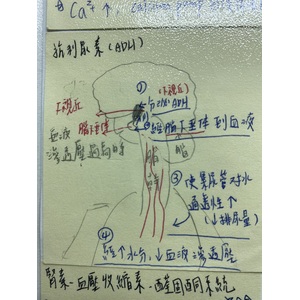 Ca²⁺ ↑
抗利尿素 (ADH)
①
(下視丘)
分泌ADH
下視丘
腦下垂體
②經腦下垂體到血液
血液
滲透壓過高時
腦
腎
③ 使集尿管對水
通透性↑
(↓排尿量)
④
↑水分, ↓血液滲透壓
腎素-血壓收縮素-醛固酮系統